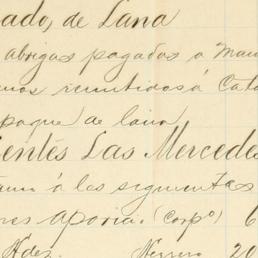 ado, de Lana
abrigas pagadas a Mau
nos remitidos á Cata
paque de lana
entes Las Mercedes
á las siguientes
res aporia. (Corpº) 6
Hdez. Herrero 20